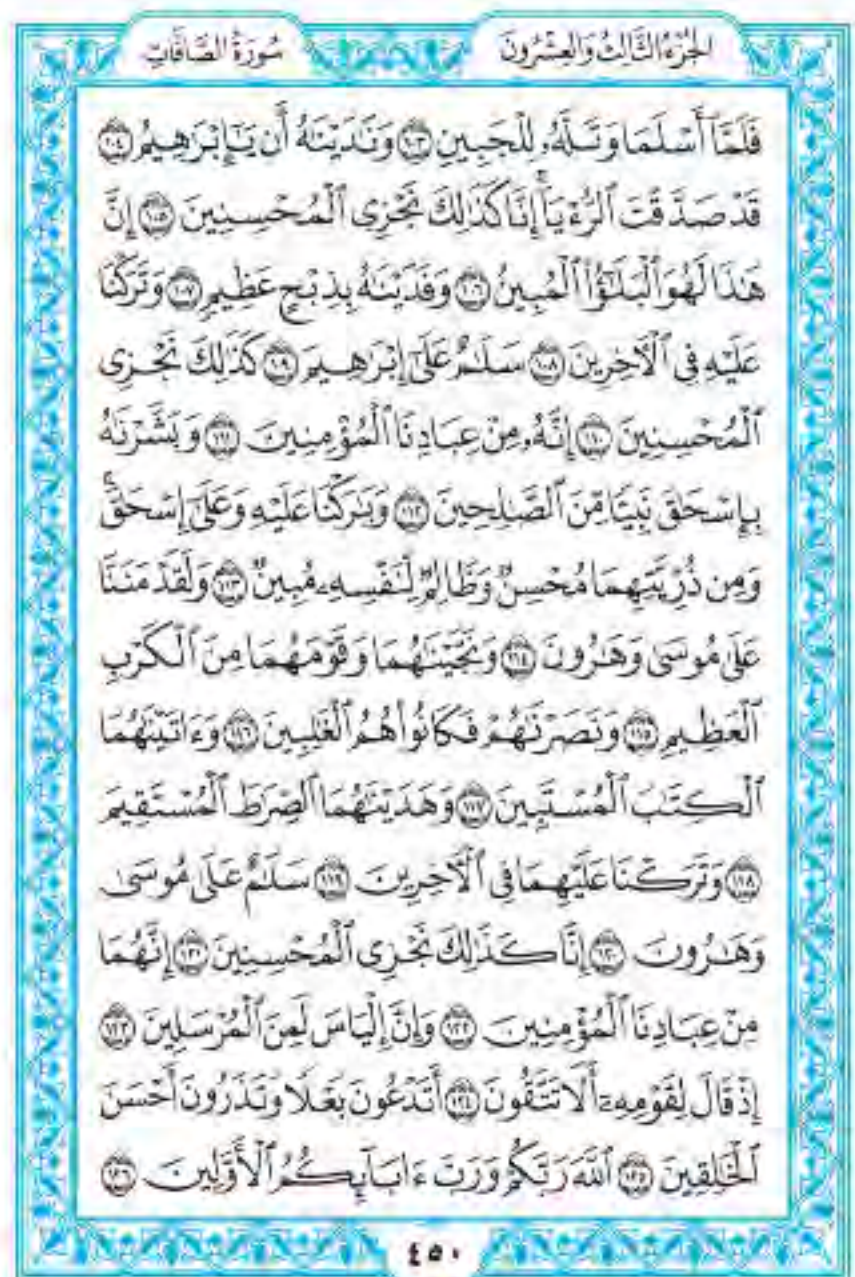 الجُزْءُ الثَّالِثُ وَالعِشْرُونَ
سُورَةُ الصَّافَّاتِ
فَلَمَّآ أَسْلَمَا وَتَلَّهُۥ لِلْجَبِينِ ١٠٣ وَنَـٰدَيْنَـٰهُ أَن يَـٰٓإِبْرَٰهِيمُ ١٠٤
قَدْ صَدَّقْتَ ٱلرُّءْيَآ ۚ إِنَّا كَذَٰلِكَ نَجْزِى ٱلْمُحْسِنِينَ ١٠٥ إِنَّ
هَـٰذَا لَهُوَ ٱلْبَلَـٰٓؤُا۟ ٱلْمُبِينُ ١٠٦ وَفَدَيْنَـٰهُ بِذِبْحٍ عَظِيمٍ ١٠٧ وَتَرَكْنَا
عَلَيْهِ فِى ٱلْـَٔاخِرِينَ ١٠٨ سَلَـٰمٌ عَلَىٰٓ إِبْرَٰهِيمَ ١٠٩ كَذَٰلِكَ نَجْزِى
ٱلْمُحْسِنِينَ ١١٠ إِنَّهُۥ مِنْ عِبَادِنَا ٱلْمُؤْمِنِينَ ١١١ وَبَشَّرْنَـٰهُ
بِإِسْحَـٰقَ نَبِيًّا مِّنَ ٱلصَّـٰلِحِينَ ١١٢ وَبَـٰرَكْنَا عَلَيْهِ وَعَلَىٰٓ إِسْحَـٰقَ ۚ
وَمِن ذُرِّيَّتِهِمَا مُحْسِنٌ وَظَالِمٌ لِّنَفْسِهِۦ مُبِينٌ ١١٣ وَلَقَدْ مَنَنَّا
عَلَىٰ مُوسَىٰ وَهَـٰرُونَ ١١٤ وَنَجَّيْنَـٰهُمَا وَقَوْمَهُمَا مِنَ ٱلْكَرْبِ
ٱلْعَظِيمِ ١١٥ وَنَصَرْنَـٰهُمْ فَكَانُوا۟ هُمُ ٱلْغَـٰلِبِينَ ١١٦ وَءَاتَيْنَـٰهُمَا
ٱلْكِتَـٰبَ ٱلْمُسْتَبِينَ ١١٧ وَهَدَيْنَـٰهُمَا ٱلصِّرَٰطَ ٱلْمُسْتَقِيمَ
١١٨ وَتَرَكْنَا عَلَيْهِمَا فِى ٱلْـَٔاخِرِينَ ١١٩ سَلَـٰمٌ عَلَىٰ مُوسَىٰ
وَهَـٰرُونَ ١٢٠ إِنَّا كَذَٰلِكَ نَجْزِى ٱلْمُحْسِنِينَ ١٢١ إِنَّهُمَا
مِنْ عِبَادِنَا ٱلْمُؤْمِنِينَ ١٢٢ وَإِنَّ إِلْيَاسَ لَمِنَ ٱلْمُرْسَلِينَ ١٢٣
إِذْ قَالَ لِقَوْمِهِۦٓ أَلَا تَتَّقُونَ ١٢٤ أَتَدْعُونَ بَعْلًا وَتَذَرُونَ أَحْسَنَ
ٱلْخَـٰلِقِينَ ١٢٥ ٱللَّهَ رَبَّكُمْ وَرَبَّ ءَابَآئِكُمُ ٱلْأَوَّلِينَ ١٢٦
٤٥٠